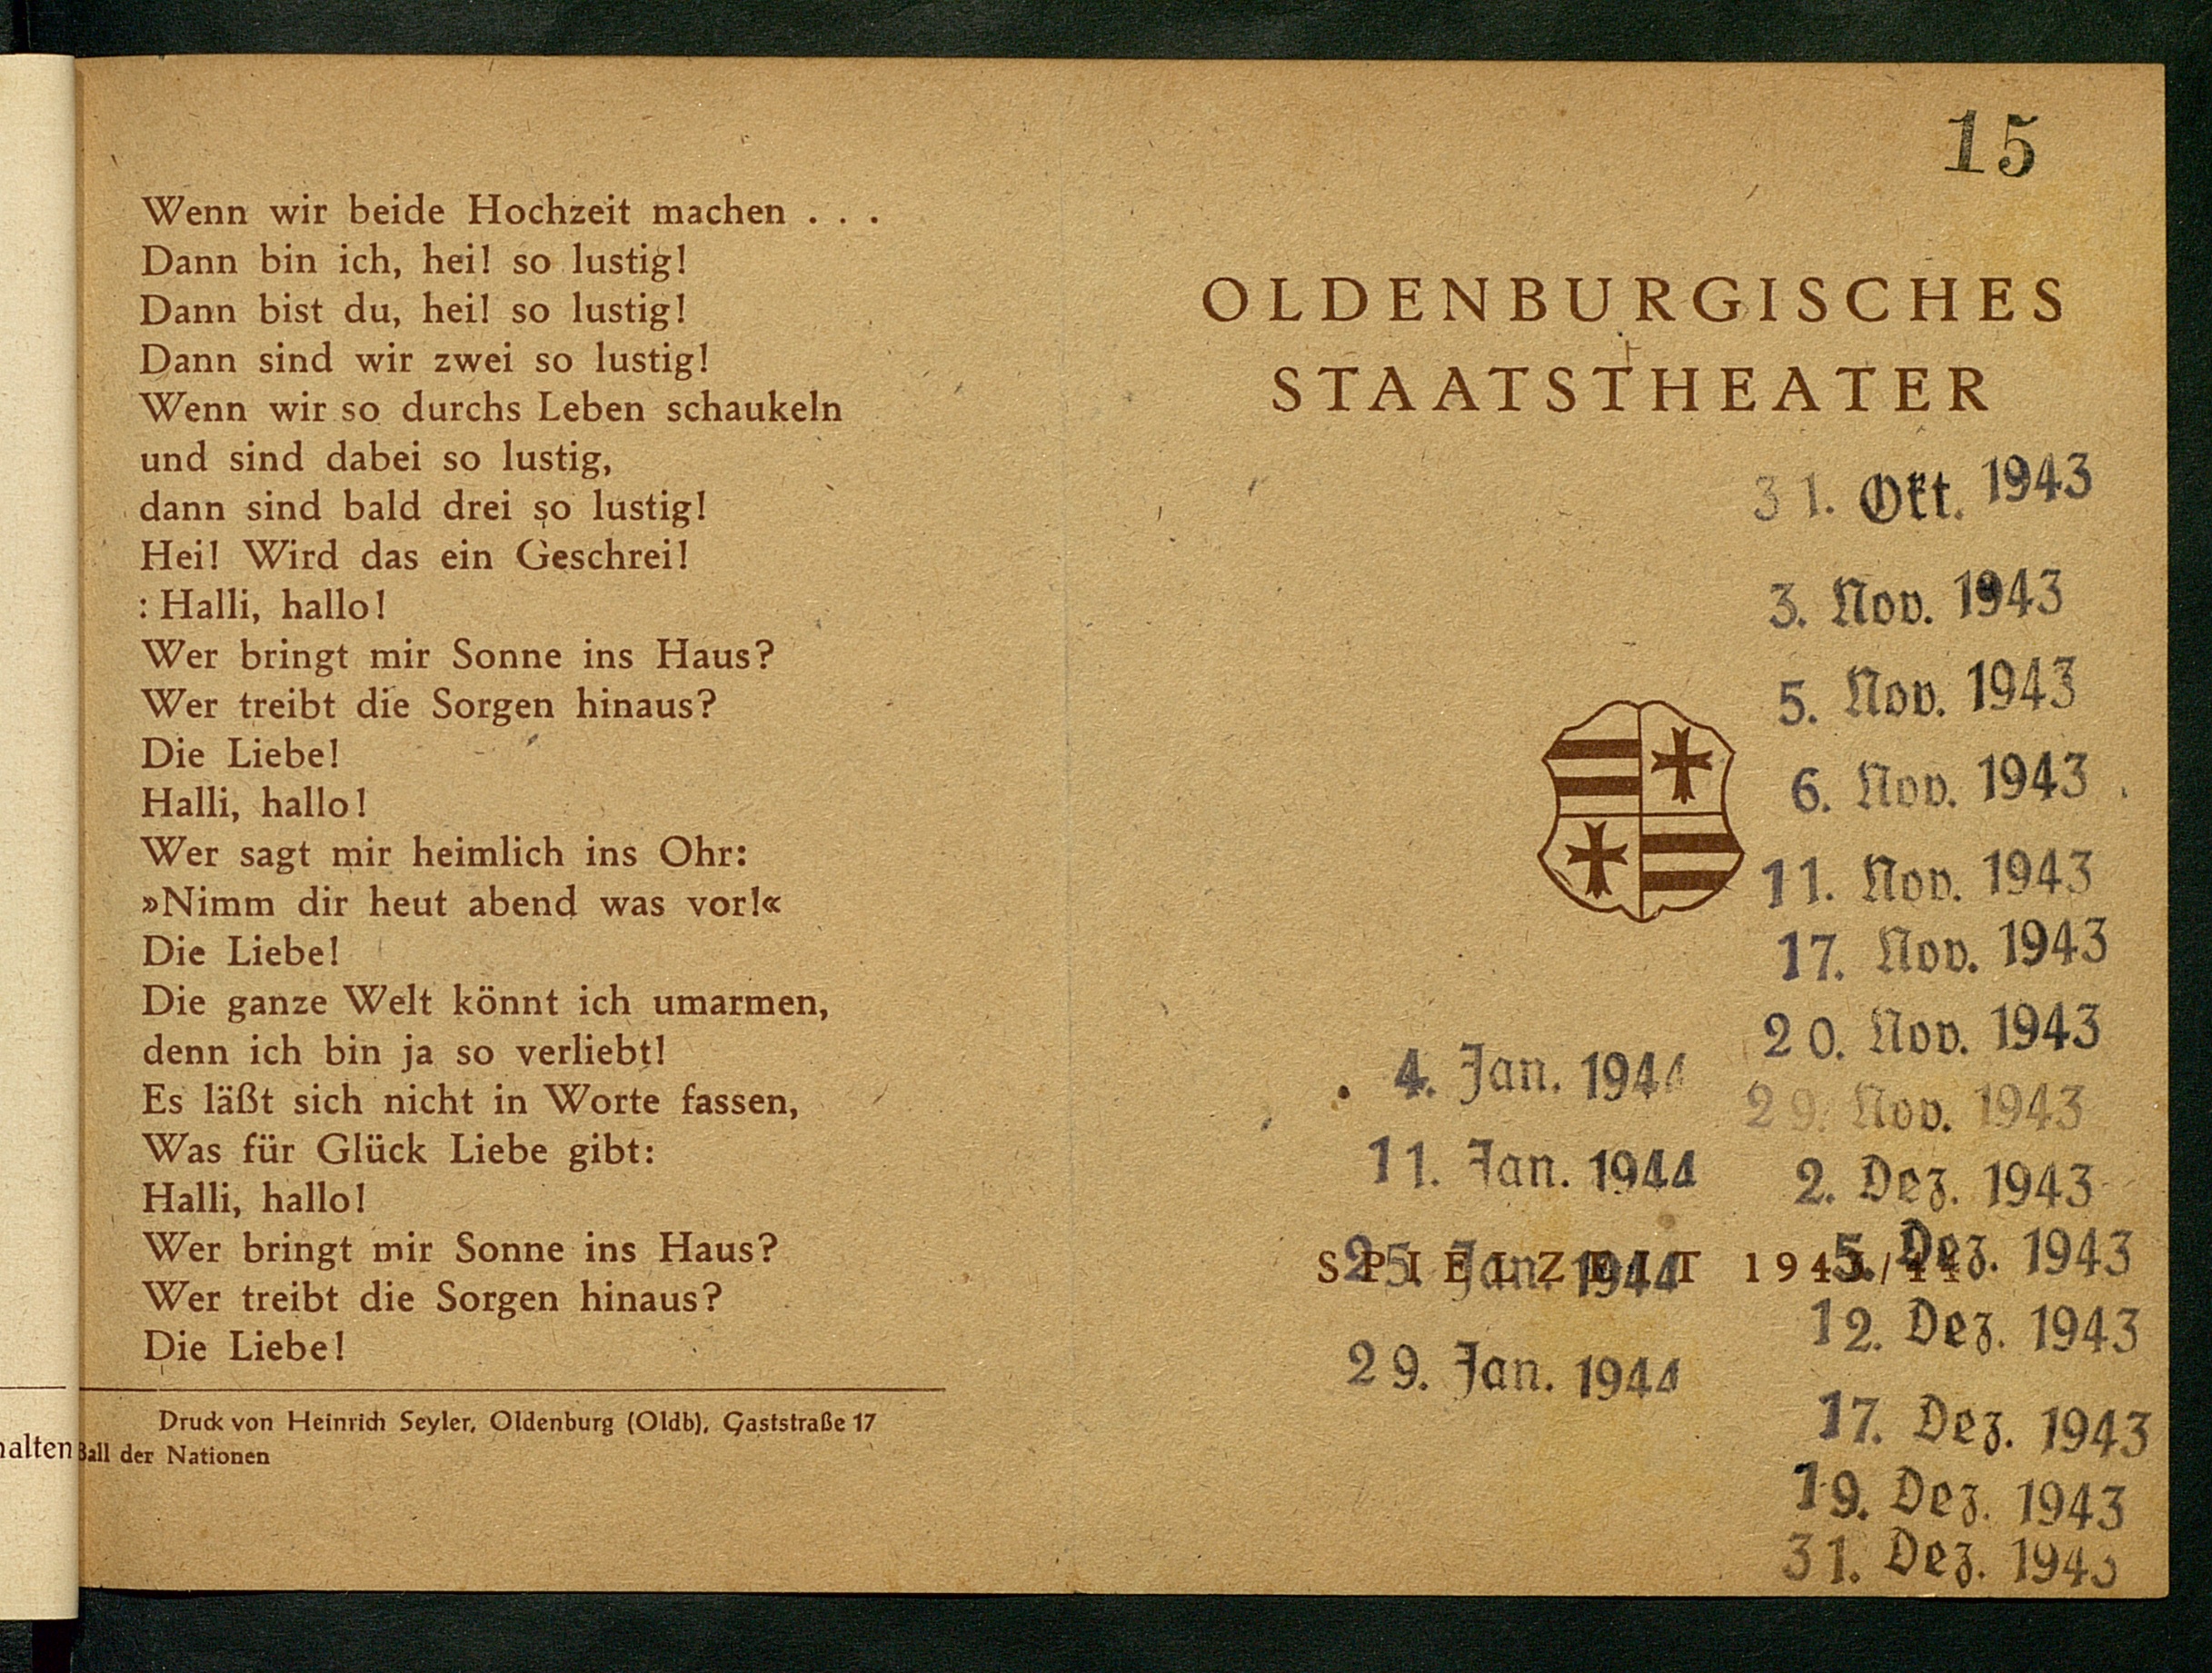 Wenn wir beide Hochzeit machen . . .
Dann bin ich, hei! so lustig!
Dann bist du, hei! so lustig!
Dann sind wir zwei so lustig!
Wenn wir so durchs Leben schaukeln
und sind dabei so lustig,
dann sind bald drei so lustig!
Hei! Wird das ein Geschrei!
: Halli, hallo!
Wer bringt mir Sonne ins Haus?
Wer treibt die Sorgen hinaus?
Die Liebe!
Halli, hallo!
Wer sagt mir heimlich ins Ohr:
»Nimm dir heut abend was vor!«
Die Liebe!
Die ganze Welt könnt ich umarmen,
denn ich bin ja so verliebt!
Es läßt sich nicht in Worte fassen,
Was für Glück Liebe gibt:
Halli, hallo!
Wer bringt mir Sonne ins Haus?
Wer treibt die Sorgen hinaus?
Die Liebe!
Druck von Heinrich Seyler, Oldenburg (Oldb), Gaststraße 17
Ball der Nationen
15
OLDENBURGISCHES
STAATSTHEATER
31. Okt. 1943
3. Nov. 1943
5. Nov. 1943
6. Nov. 1943
11. Nov. 1943
17. Nov. 1943
20. Nov. 1943
29. Nov. 1943
2. Dez. 1943
5. Dez. 1943
12. Dez. 1943
17. Dez. 1943
19. Dez. 1943
31. Dez. 1943
4. Jan. 1944
11. Jan. 1944
25. Jan. 1944
SPIELZEIT 1943/44
29. Jan. 1944